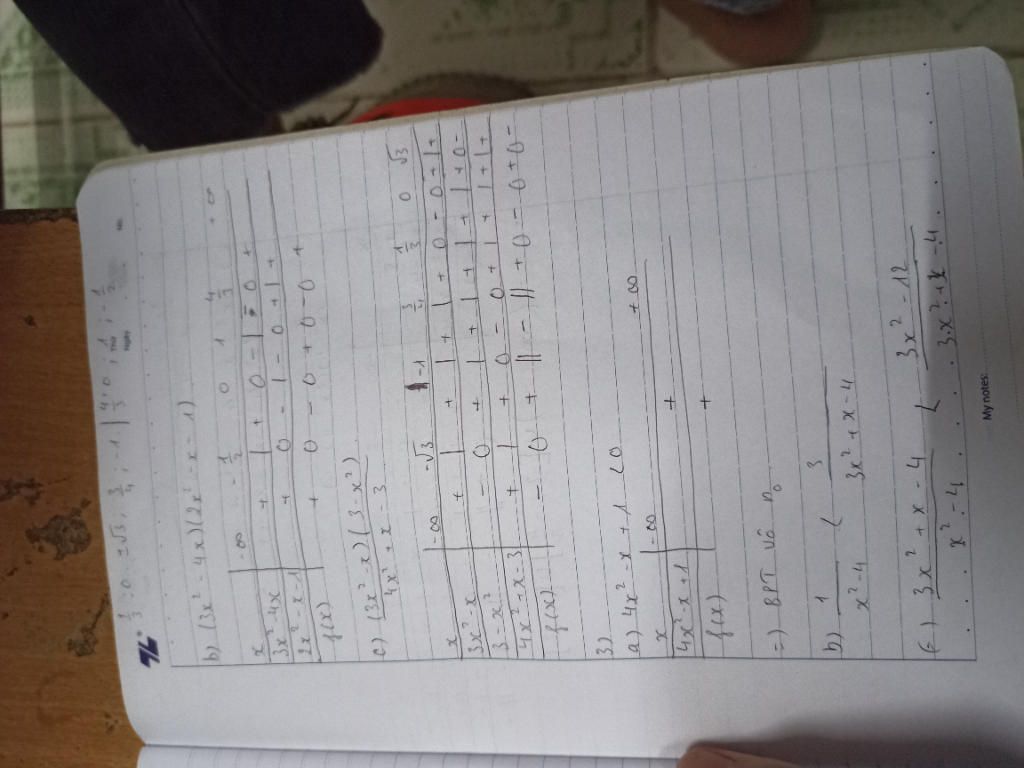 1/3 ; 0 ; ±√3 ; 3/4 ; -1 | 4/3 ; 0 ; 1 ; -1/2
No.
b) (3x² - 4x)(2x² - x - 1)
x | -∞ -1/2 0 1 4/3 +∞
3x² - 4x | + | + 0 - | - 0 +
2x² - x - 1 | + 0 - | - 0 + | +
f(x) + 0 - 0 + 0 - 0 +
c) (3x² - x)(3 - x²) / 4x² + x - 3
x | -∞ -√3 -1 3/4 1/3 0 √3
3x² - x | + | + | + | + 0 - 0 + | +
3 - x² | - 0 + | + | + | + | + 0 -
4x² + x - 3 | + | + 0 - 0 + | + | + | +
f(x) | - 0 + || - || + 0 - 0 + 0 -
3)
a) 4x² - x + 1 < 0
x | -∞ +∞
4x² - x + 1 | +
f(x) +
=) BPT vô n₀
b) 1 / x² - 4 < 3 / 3x² + x - 4
c) 3x² + x - 4 / x² - 4 < 3x² - 12 / 3x² + x - 4
My notes: